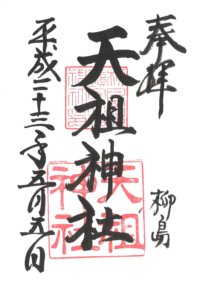 奉拝
柳島
天祖神社
天祖
神社
平成二十三年五月五日